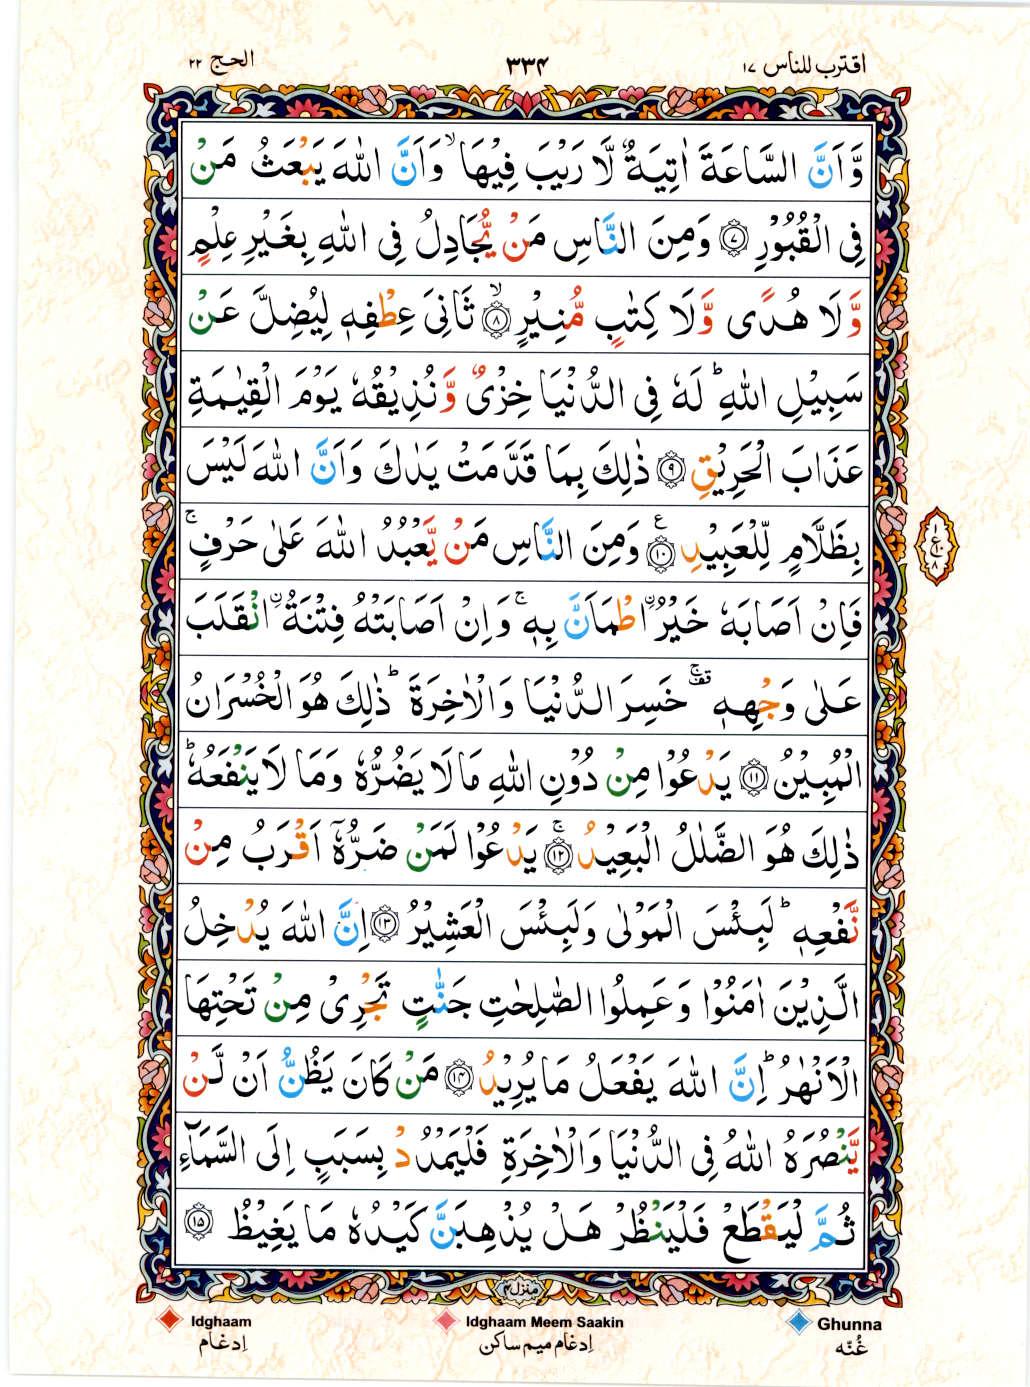 اقترب للناس ١٧
٣٣٤
الحج ٢٢
وَّاَنَّ السَّاعَةَ اٰتِيَةٌ لَّا رَيْبَ فِيْهَا ۙ وَاَنَّ اللّٰهَ يَبْعَثُ مَنْ
فِى الْقُبُوْرِ ۝٧ وَمِنَ النَّاسِ مَنْ يُّجَادِلُ فِى اللّٰهِ بِغَيْرِ عِلْمٍ
وَّلَا هُدًى وَّلَا كِتٰبٍ مُّنِيْرٍ ۙ۝٨ ثَانِىَ عِطْفِهٖ لِيُضِلَّ عَنْ
سَبِيْلِ اللّٰهِ ؕ لَهٗ فِى الدُّنْيَا خِزْىٌ وَّنُذِيْقُهٗ يَوْمَ الْقِيٰمَةِ
عَذَابَ الْحَرِيْقِ ۝٩ ذٰلِكَ بِمَا قَدَّمَتْ يَدٰكَ وَاَنَّ اللّٰهَ لَيْسَ
بِظَلَّامٍ لِّلْعَبِيْدِ ۝١٠ ع وَمِنَ النَّاسِ مَنْ يَّعْبُدُ اللّٰهَ عَلٰى حَرْفٍ ۚ
فَاِنْ اَصَابَهٗ خَيْرُ ۨاطْمَاَنَّ بِهٖ ۚ وَاِنْ اَصَابَتْهُ فِتْنَةُ ۨانْقَلَبَ
عَلٰى وَجْهِهٖ ۚقف خَسِرَ الدُّنْيَا وَالْاٰخِرَةَ ؕ ذٰلِكَ هُوَ الْخُسْرَانُ
الْمُبِيْنُ ۝١١ يَدْعُوْا مِنْ دُوْنِ اللّٰهِ مَا لَا يَضُرُّهٗ وَمَا لَا يَنْفَعُهٗ ؕ
ذٰلِكَ هُوَ الضَّلٰلُ الْبَعِيْدُ ۚ۝١٢ يَدْعُوْا لَمَنْ ضَرُّهٗٓ اَقْرَبُ مِنْ
نَّفْعِهٖ ؕ لَبِئْسَ الْمَوْلٰى وَلَبِئْسَ الْعَشِيْرُ ۝١٣ اِنَّ اللّٰهَ يُدْخِلُ
الَّذِيْنَ اٰمَنُوْا وَعَمِلُوا الصّٰلِحٰتِ جَنّٰتٍ تَجْرِىْ مِنْ تَحْتِهَا
الْاَنْهٰرُ ؕ اِنَّ اللّٰهَ يَفْعَلُ مَا يُرِيْدُ ۝١٤ مَنْ كَانَ يَظُنُّ اَنْ لَّنْ
يَّنْصُرَهُ اللّٰهُ فِى الدُّنْيَا وَالْاٰخِرَةِ فَلْيَمْدُدْ بِسَبَبٍ اِلَى السَّمَآءِ
ثُمَّ لْيَقْطَعْ فَلْيَنْظُرْ هَلْ يُذْهِبَنَّ كَيْدُهٗ مَا يَغِيْظُ ۝١٥
١
ع١٠
٨
منزل ٤
Idghaam
Idghaam Meem Saakin
Ghunna
اِدغام
اِدغام میم ساکن
غُنّه